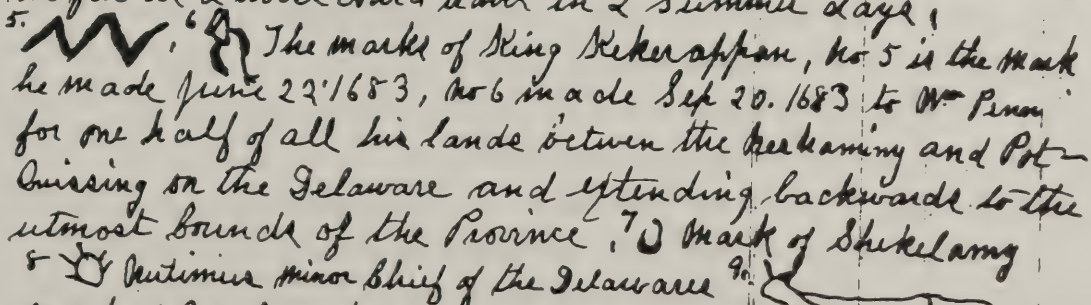 in 2 summer days,
5. , 6 The marks of King Kekerappan, No 5 is the mark
he made June 22 1683, No 6 made Sep 20. 1683 to Wm Penn
for one half of all his lands betwen the and Pot-
Quissing on the Delaware and extending backwards to the
utmost bounds of the Province, 7 Mark of Shekelamy
8 Nutimius minor Chief of the Delawares 9.